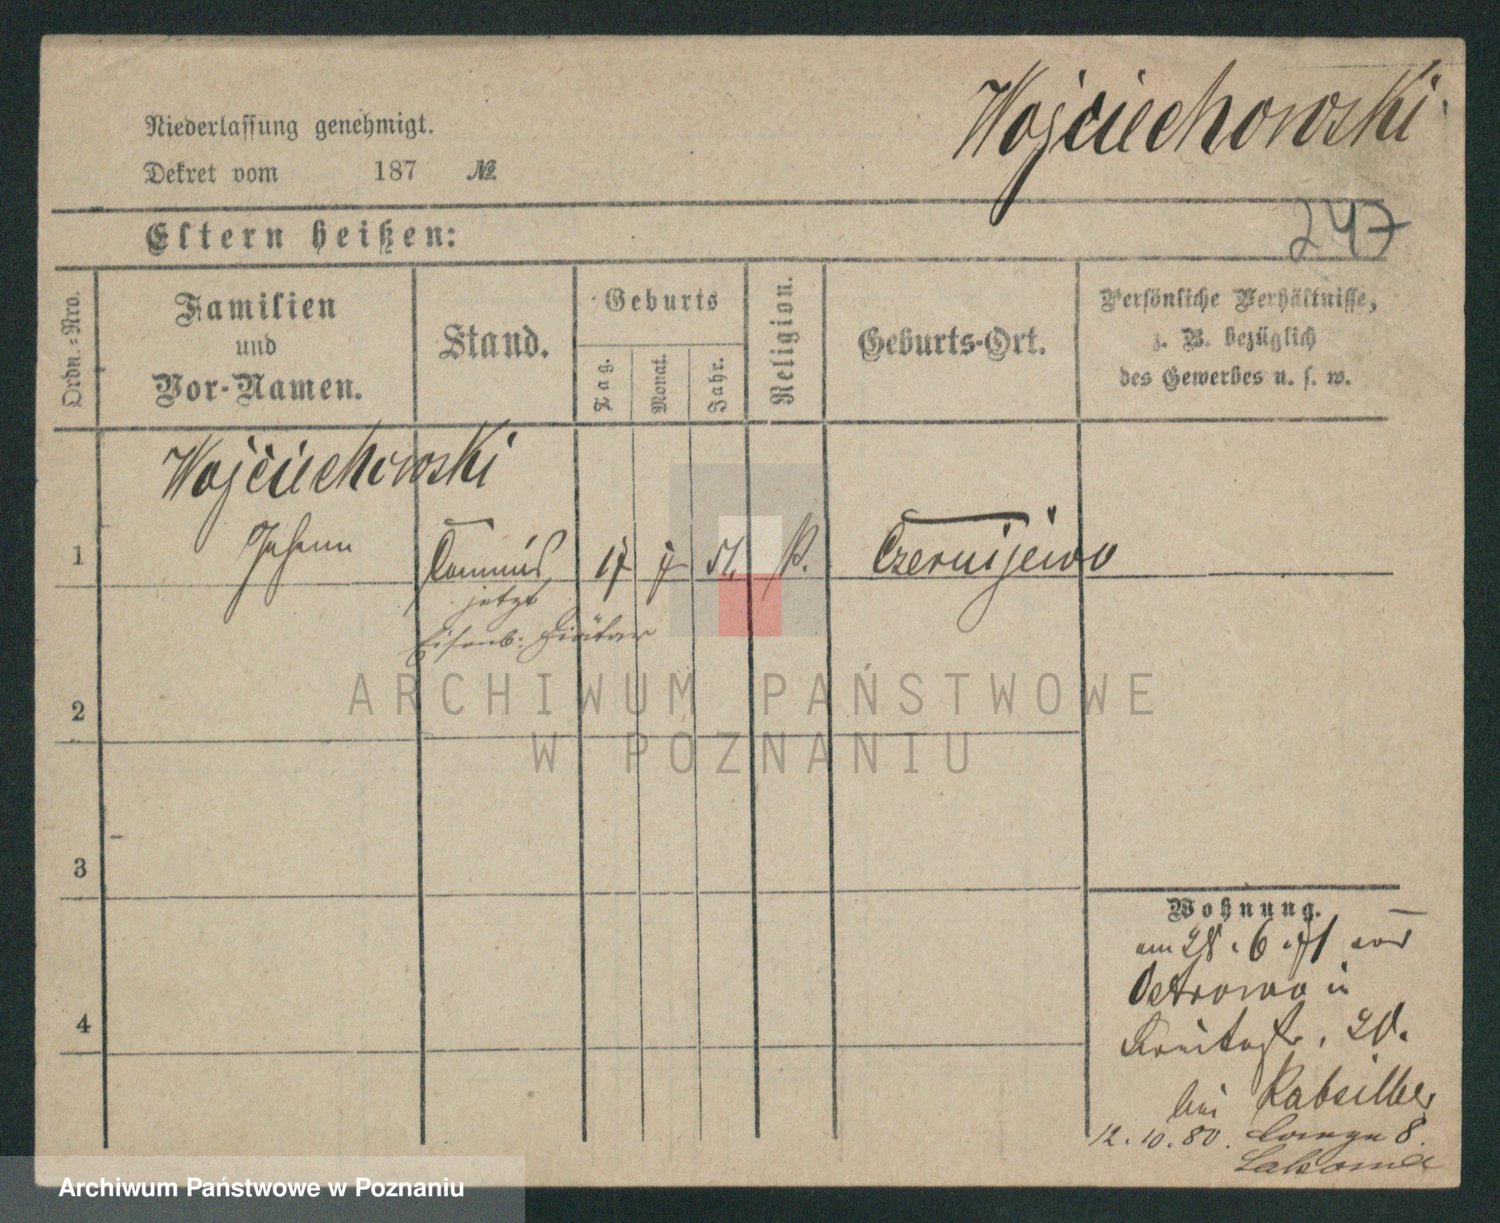 Wojciechowski.
Niederlassung genehmigt.
Dekret vom 187 №
247
Eltern heißen:
Ordn.=Nro.
Familien
und
Vor-Namen.
Stand.
Geburts
Tag.
Monat.
Jahr.
Religion.
Geburts-Ort.
Persönliche Verhältnisse,
z. B. bezüglich
des Gewerbes u. s. w.
Wojciechowski
1 Johann Commis 17 7 51. Czernijewo
jetzt
Eisenb: Diätar
2
3
4
Wohnung.
am 28.6.71 aus
Ostrowo in
bei
12.10.80. Lange 8.
ARCHIWUM PAŃSTWOWE
W POZNANIU
Archiwum Państwowe w Poznaniu